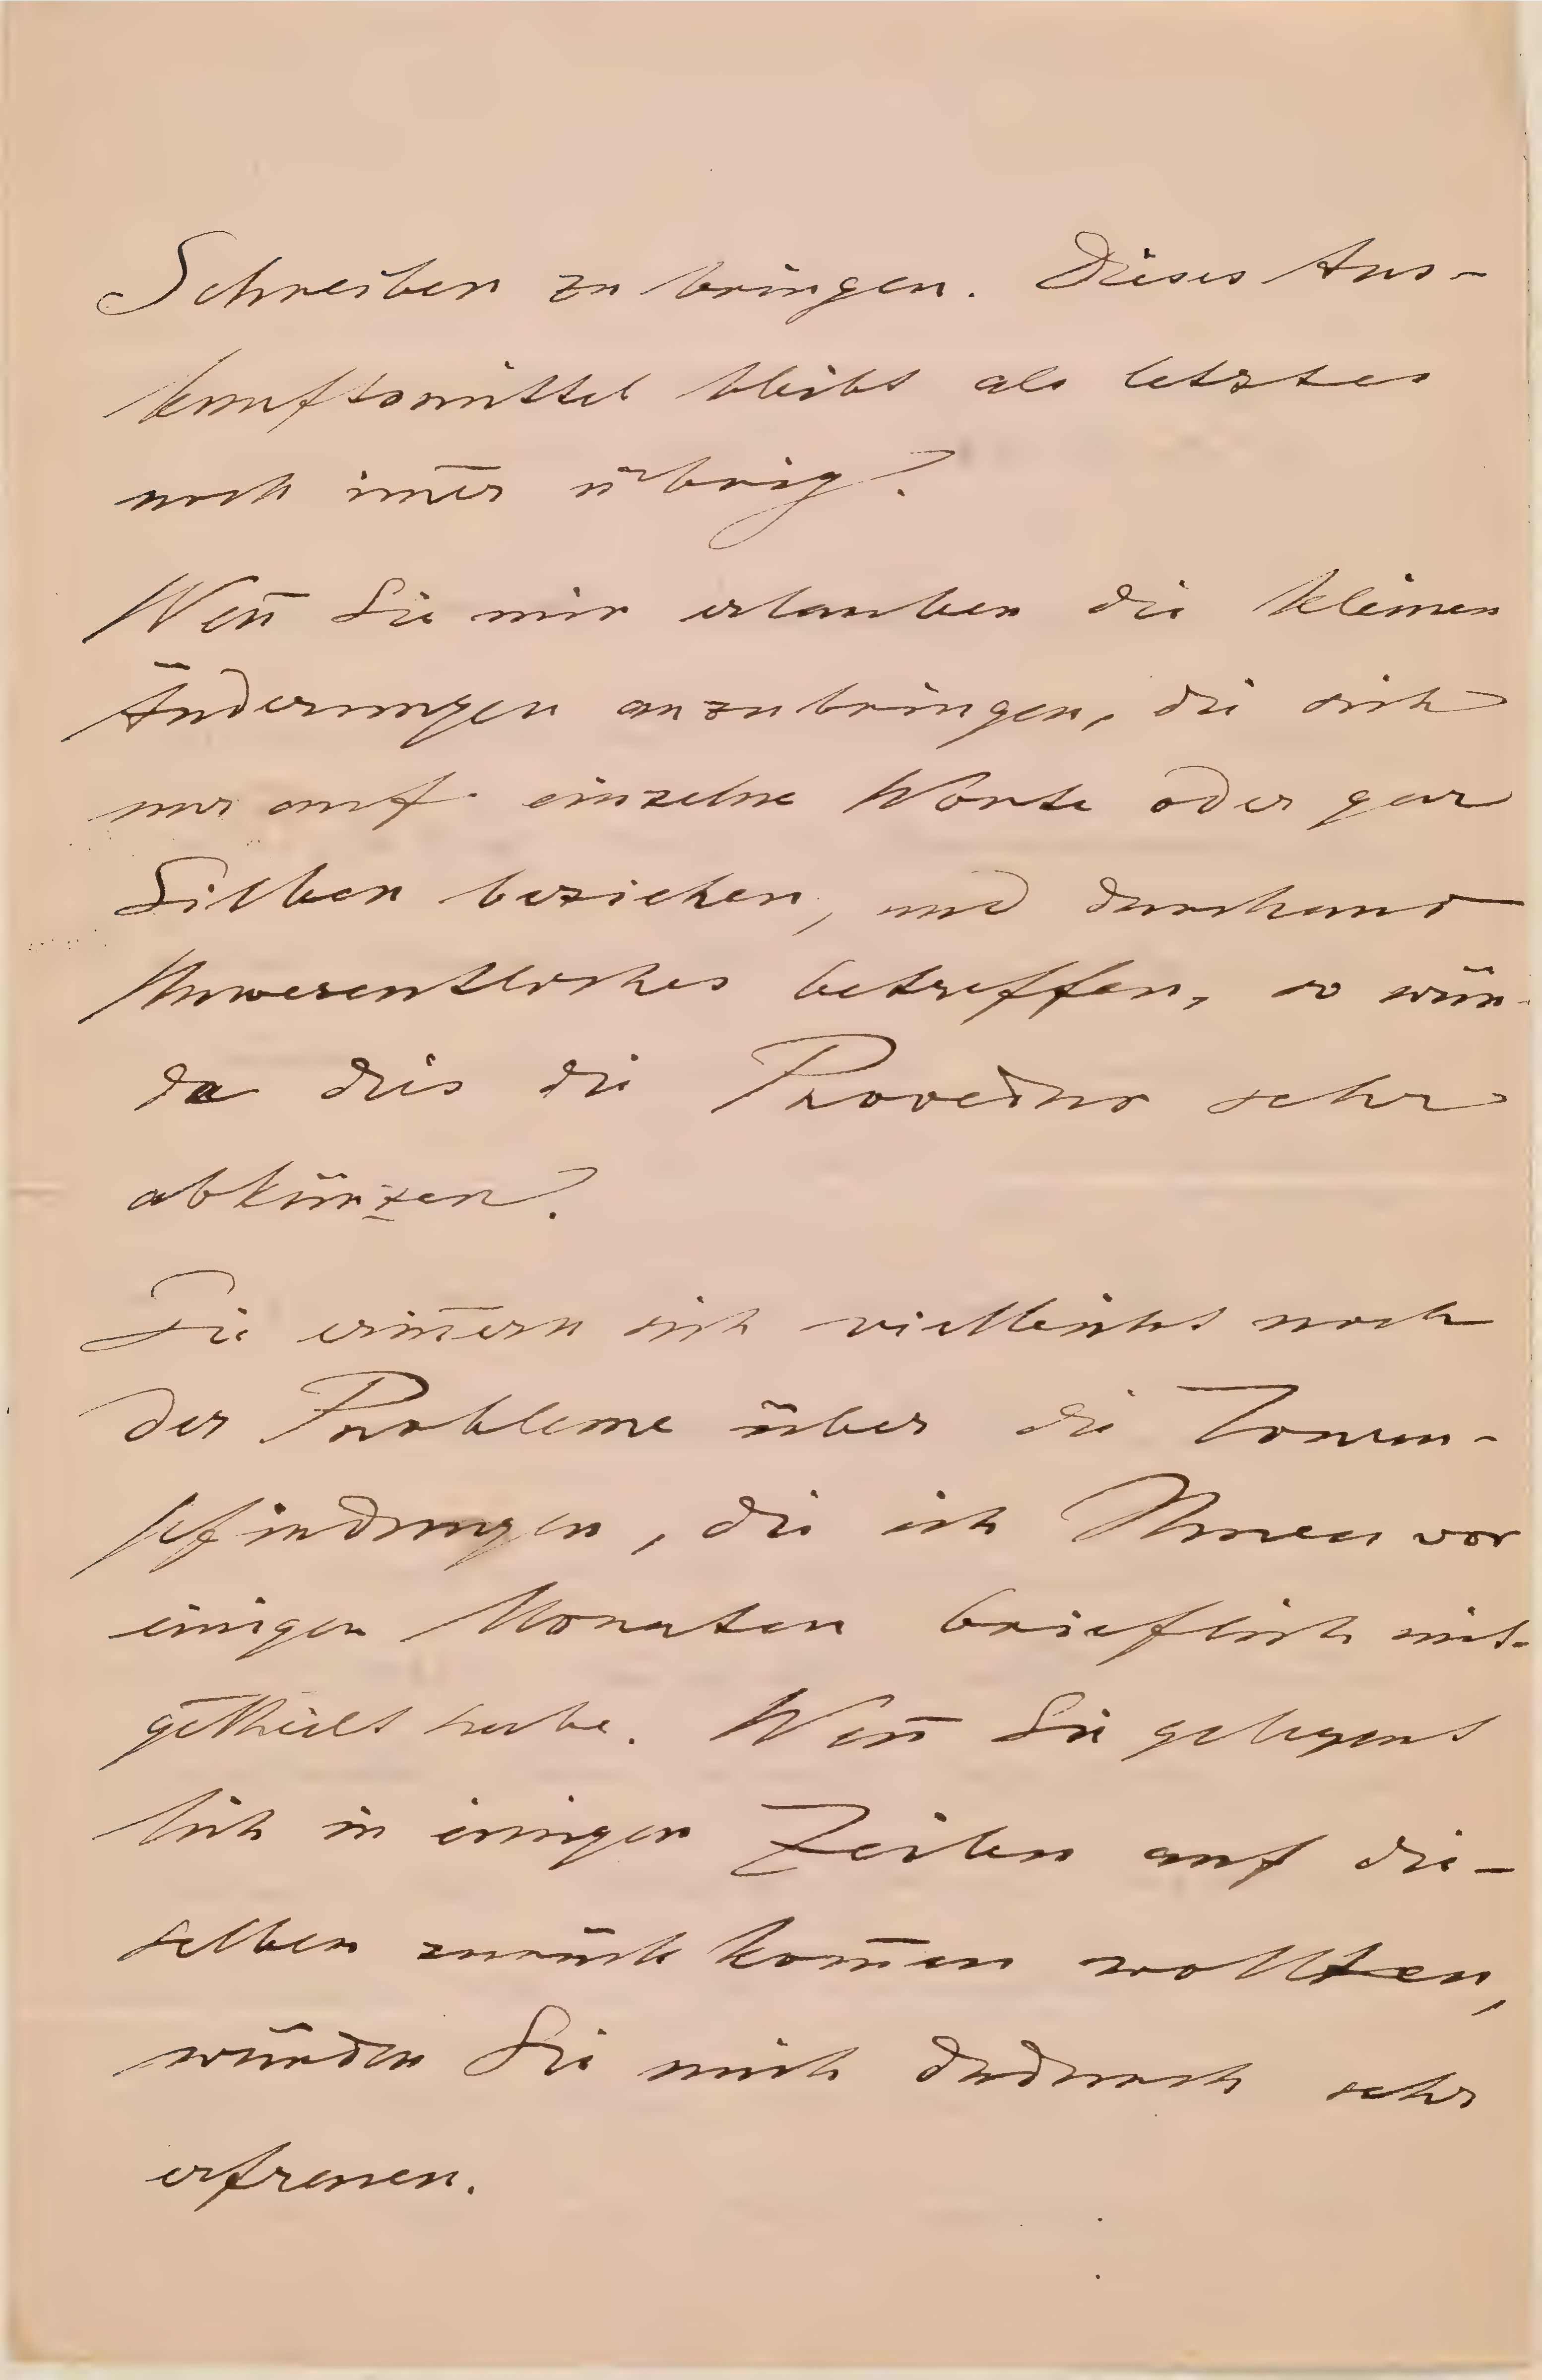 Schreiben zu bringen. Dieses Aus-
kunftsmittel bleibt als letztes
noch im̄er übrig.
Wen̄ Sie mir erlauben die kleinen
Änderungen anzubringen, die sich
nur auf einzelne Worte oder gar
Silben beziehen, und durchaus
Unwesentliches betreffen, so wür-
de dies die Procedur sehr
abkürzen.
Sie erin̄ern sich vielleicht noch
der Probleme über die Tonem-
pfindungen, die ich Ihnen vor
einigen Monaten brieflich mit-
getheilt habe. Wen̄ Sie gelegent
lich in einigen Zeilen auf die-
selben zurückkom̄en wollten,
würden Sie mich dadurch sehr
erfreuen.